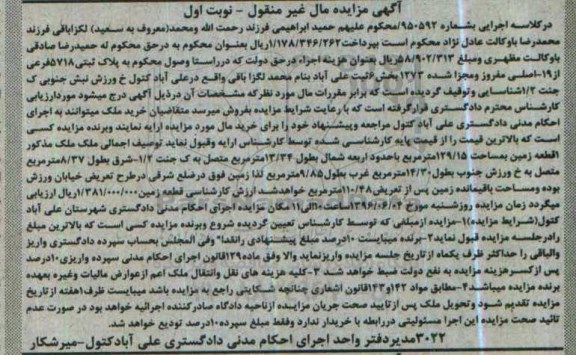 آگهی مزایده مال غیر منقول - نوبت اول
درکلاسه اجرایی بشماره ۹۵۰۵۹۲/محکوم علیهم حمید ابراهیمی فرزند رحمت الله ومحمد(معروف به سعید) لکزاباقی فرزند
محمدرضا باوکالت عادل نژاد محکوم است بپرداخت۱/۱۷۸/۳۴۶/۲۶۲ریال بعنوان محکوم به درحق محکوم له حمیدرضا صادقی
باوکالت مظهری ومبلغ ۵۸/۹۰۲/۳۱۳ریال بعنوان هزینه اجراء درحق دولت که درراستا وصول محکوم به پلاک ثبتی۵۷۱۸فرعی
از۱۹-اصلی مفروز ومجزا شده ۱۲۷۳بخش۶ثبت علی آباد بنام محمد لکزا باقی واقع درعلی آباد کتول خ ورزش نبش جنوبی ک
جنت ۱/۲شناسایی وتوقیف گردیده است که برابر مقررات مال مورد نظرکه مشخصات آن درذیل آگهی درج میشود موردارزیابی
کارشناس محترم دادگستری قرارگرفته است که با رعایت شرایط مزایده بفروش میرسد متقاضیان خرید ملک میتوانند به اجرای
احکام مدنی دادگستری علی آباد کتول مراجعه وپیشنهاد خود را برای خرید مال مورد مزایده ارایه نمایند وبرنده مزایده کسی
است که بالاترین قیمت را از قیمت پایه کارشناسی شده توسط کارشناس ارایه وقبول نماید توصیف اجمالی ملک ملک مذکور
۱قطعه زمین بمساحت ۱۲۹/۱۵مترمربع باحدود اربعه شمال بطول ۱۳/۳۴مترمربع متصل به ک جنت ۱/۲-شرق بطول ۸/۳۷مترمربع
متصل به خ ورزش جنوب بطول۱۴/۳۰مترمربع غرب بطول۹/۸۵مترمربع لذا زمین فوق درضلع شرقی درطرح تعریض خیابان ورزش
بوده ومساحت باقیمانده زمین پس از تعریض۱۱۰/۴۸مترمربع خواهدشد ارزش کارشناسی قطعه زمین۱/۳۸۱/۰۰۰/۰۰۰ریال ارزیابی
میگردد زمان مزایده روزشنبه مورخ۱۳۹۶/۰۶/۰۴ساعت۱۰الی۱۱مکان مزایده اجرای احکام مدنی دادگستری شهرستان علی آباد
کتول(شرایط مزایده)۱-مزایده ازمبلغی که توسط کارشناس تعیین گردیده شروع وبرنده مزایده کسی است که بالاترین مبلغ
رادرجلسه مزایده قبول نماید۲-برنده میبایست ۱۰درصد مبلغ پیشنهادی رانقدا" وفی المجلس بحساب سپرده دادگستری واریز
والباقی را حداکثر ظرف یکماه ازتاریخ جلسه مزایده واریزنماید والا وفق ماده۱۲۹قانون اجرای احکام مدنی سپرده واریزی۱۰درصد
پس ازکسرهزینه مزایده به نفع دولت ضبط خواهد شد ۳-کلیه هزینه های نقل وانتقال ملک اعم ازعوارض مالیات وغیره بعهده
برنده مزایده میباشد۴-مطابق مواد ۱۴۲و۱۴۳قانون اشعاری چنانچه شکایتی راجع به مزایده باشد میبایست ظرف۱هفته ازتاریخ
مزایده تقدیم شود وتحویل ملک پس ازتایید صحت جریان مزایده ازناحیه دادگاه صادرکننده اجرائیه خواهد بود در صورت عدم
تائید صحت مزایده این اجرا مسئولیتی دررابطه با خریدار ندارد وفقط مبلغ سپرده۱۰درصد تودیع خواهد شد.
۳۰۲۲مدیردفتر واحد اجرای احکام مدنی دادگستری علی آبادکتول-میرشکار